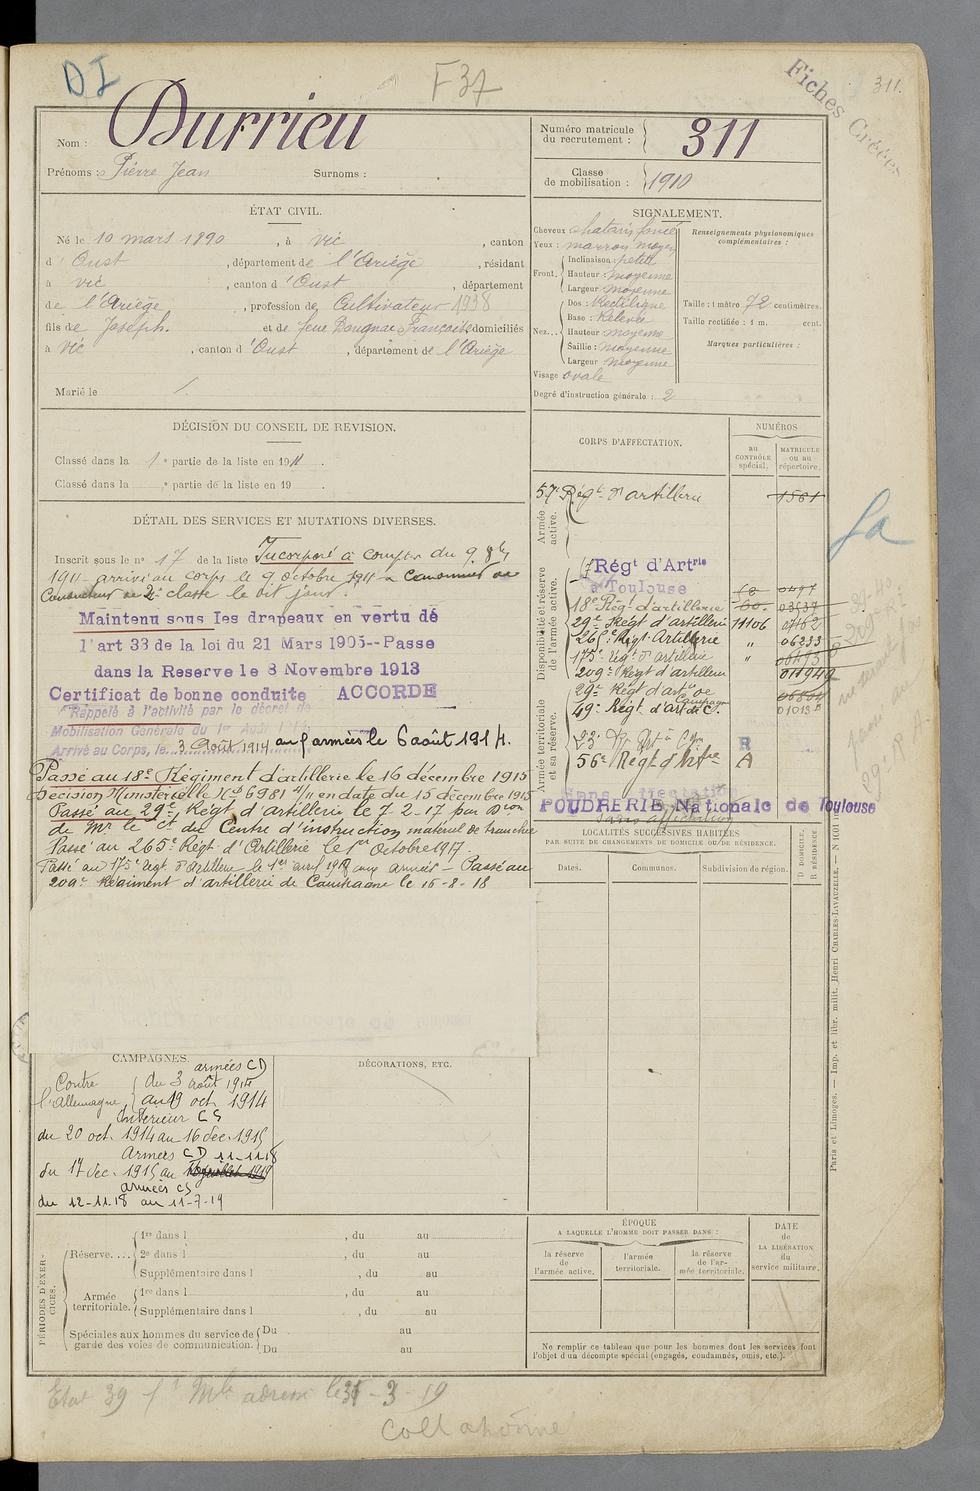 DI
F 37
Fiches Créées
311.
Nom : Durrieu
Prénoms : Pierre Jean Surnoms :
Numéro matricule du recrutement : 311
Classe de mobilisation : 1910
ÉTAT CIVIL.
Né le 10 mars 1890, à Vic, canton
d'Oust, département de l'Ariège, résidant
à Vic, canton d'Oust, département
de l'Ariège, profession de Cultivateur 1938
fils de Joseph. et de feue Dougnac Françoise domiciliés
à Vic, canton d'Oust, département de l'Ariège
Marié le
SIGNALEMENT.
Cheveux chatain foncé
Yeux : marron moyen
Front. Inclinaison : petite
Hauteur : moyenne
Largeur : moyenne
Nez... Dos : Rectiligne
Base : Relevée
Hauteur moyenne
Saillie : moyenne
Largeur moyenne
Visage ovale
Degré d'instruction générale : 2
Renseignements physionomiques complémentaires :
Taille : 1 mètre 72 centimètres.
Taille rectifiée : 1 m. cent.
Marques particulières :
DÉCISION DU CONSEIL DE REVISION.
Classé dans la 1re partie de la liste en 1911.
Classé dans la e partie de la liste en 19 .
DÉTAIL DES SERVICES ET MUTATIONS DIVERSES.
Inscrit sous le no 17 de la liste Incorporé à compter du 9. 8bre
1911 arrivé au corps le 9 octobre 1911 a canonnier de
Conducteur de 2e classe le dit jour.
Maintenu sous les drapeaux en vertu de
l'art 33 de la loi du 21 Mars 1905--Passe
dans la Reserve le 8 Novembre 1913
Certificat de bonne conduite ACCORDE
Rappelé à l'activité par le décret de
Mobilisation Générale du 1er Août 1914
Arrivé au Corps, le 3 Août 1914 aux armées le 6 août 1914.
Passé au 18e Régiment d'artillerie le 16 décembre 1915
Décision Ministérielle No 6981 en date du 15 décembre 1915
Passé au 29e Régt d'artillerie le 7-2-17 par Dion
de Mr le Ct du Centre d'instruction matériel de tranchée
Passé au 265e Régt d'Artillerie le 1er octobre 1917.
Passé au 175e Régt d'Artillerie le 1er avril 1918 aux armées - Passé au
209e Régiment d'artillerie de Campagne le 16-8-18
CORPS D'AFFECTATION.
NUMÉROS
au CONTRÔLE spécial.
MATRICULE ou au répertoire.
Armée active.
57e Régt d'artillerie 1561
Disponibilité et réserve de l'armée active.
Régt d'Artrie
à Toulouse
18e Régt d'artillerie 03537
29e Régt d'artillerie 11106 07162
265e Régt Artillerie " 06333
175e Régt d'artillerie "
209e Régt d'artillerie
29e Régt d'artie de Campagne
49e Régt d'art de C.
Armée territoriale et sa réserve.
R
56e Régt d'Artie A
Sans affectation
POUDRERIE Nationale de Toulouse
Sans affectation
LOCALITÉS SUCCESSIVES HABITÉES
PAR SUITE DE CHANGEMENTS DE DOMICILE OU DE RÉSIDENCE.
Dates.
Communes.
Subdivision de région.
D DOMICILE.
R RÉSIDENCE
CAMPAGNES.
Contre l'Allemagne,
armées CD
du 3 août 1914
au 19 oct. 1914
Intérieur CS
du 20 oct. 1914 au 16 dec. 1915
Armées CD 11-11-18
du 17 dec. 1915 au
armées CS
du 12-11-18 au 11-7-19
DÉCORATIONS, ETC.
PÉRIODES D'EXERCICES.
Réserve....
1re dans l , du au
2e dans l , du au
Supplémentaire dans l , du au
Armée territoriale.
1re dans l , du au
Supplémentaire dans l , du au
Spéciales aux hommes du service de garde des voies de communication.
Du au
Du au
ÉPOQUE
A LAQUELLE L'HOMME DOIT PASSER DANS :
la réserve de l'armée active.
l'armée territoriale.
la réserve de l'armée territoriale.
DATE DE LA LIBÉRATION du service militaire.
Ne remplir ce tableau que pour les hommes dont les services font
l'objet d'un décompte spécial (engagés, condamnés, omis, etc.).
Paris et Limoges. — Imp. et libr. milit. Henri CHARLES-LAVAUZELLE.
Etat 39
adresse le 31-3-19